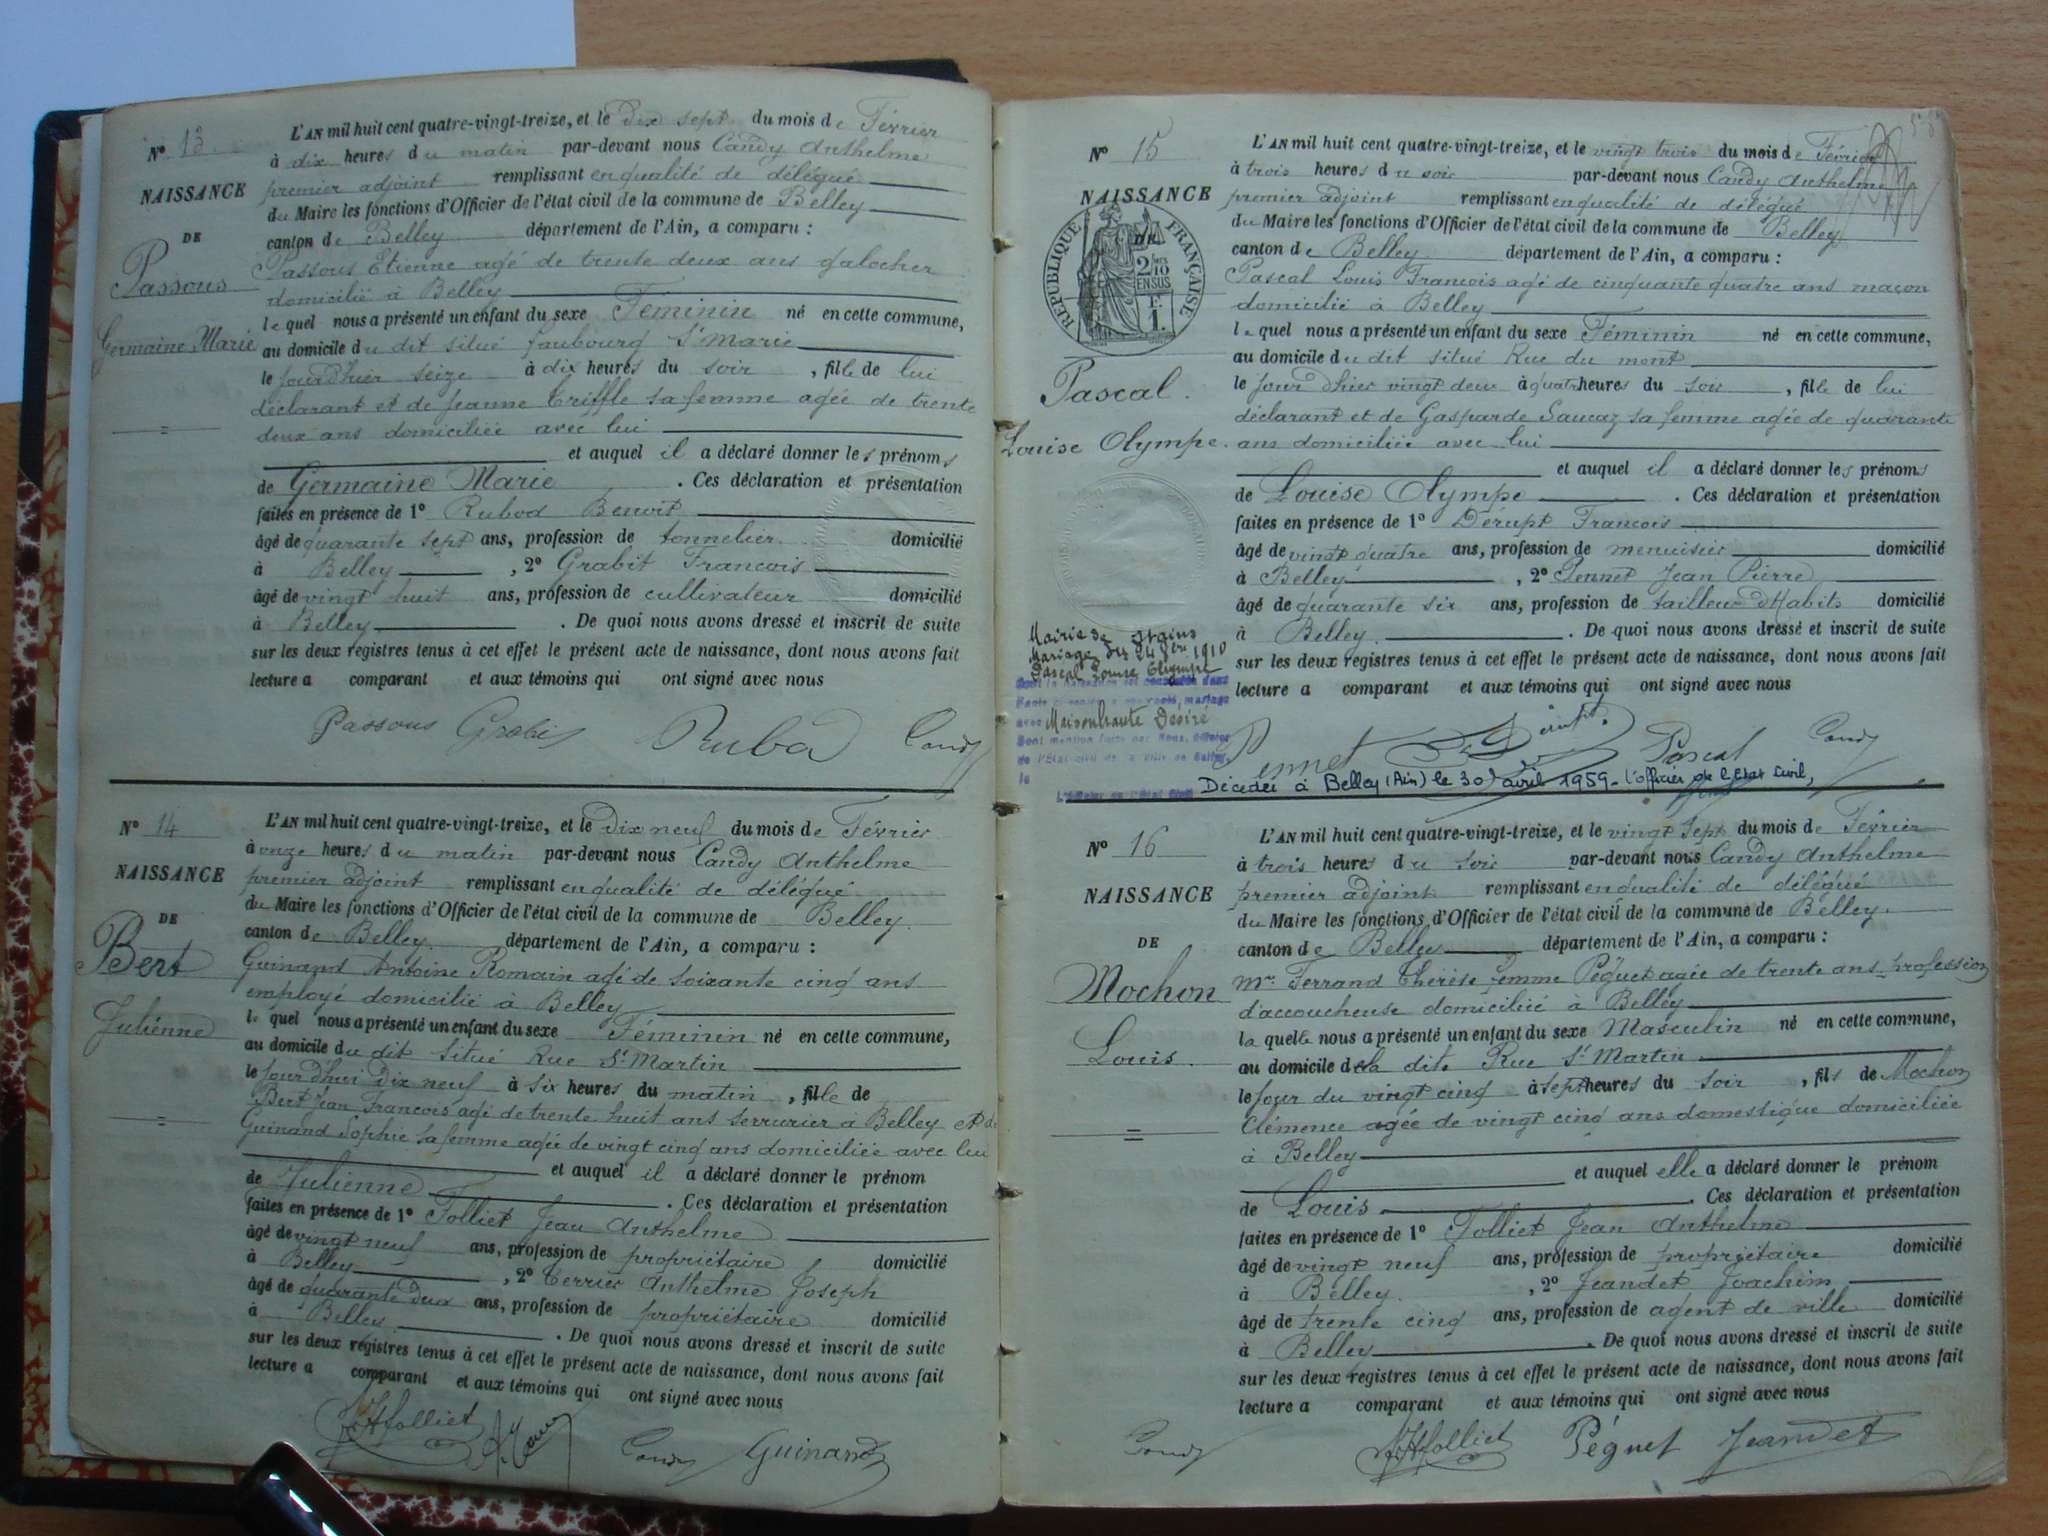 N° 13
NAISSANCE
DE
Passous
Germaine Marie
L'AN mil huit cent quatre-vingt-treize, et le Dix sept du mois de Février
à dix heures du matin par-devant nous Candy Anthelme
premier adjoint remplissant en qualité de délégué
du Maire les fonctions d'Officier de l'état civil de la commune de Belley
canton de Belley département de l'Ain, a comparu :
Passous Etienne agé de trente deux ans galocher
domicilié à Belley
le quel nous a présenté un enfant du sexe Féminin né en cette commune,
au domicile du dit situé faubourg St Marie
le jour d'hier seize à dix heures du soir, fille de lui
déclarant et de Jeanne Triffle sa femme agée de trente
deux ans domiciliée avec lui
et auquel il a déclaré donner les prénoms
de Germaine Marie. Ces déclaration et présentation
faites en présence de 1° Rubod Benoit
âgé de quarante sept ans, profession de tonnelier domicilié
à Belley, 2° Grabit Francois
âgé de vingt huit ans, profession de cultivateur domicilié
à Belley. De quoi nous avons dressé et inscrit de suite
sur les deux registres tenus à cet effet le présent acte de naissance, dont nous avons fait
lecture a comparant et aux témoins qui ont signé avec nous
Passous Grabit Rubod Candy
N° 14
NAISSANCE
DE
Bert
Julienne
L'AN mil huit cent quatre-vingt-treize, et le Dix neuf du mois de Février
à onze heures du matin par-devant nous Candy Anthelme
premier adjoint remplissant en qualité de délégué
du Maire les fonctions d'Officier de l'état civil de la commune de Belley
canton de Belley département de l'Ain, a comparu :
Guinand Antoine Romain agé de soixante cinq ans
employé domicilié à Belley
le quel nous a présenté un enfant du sexe Féminin né en cette commune,
au domicile du dit situé Rue St Martin
le jour d'hui dix neuf à six heures du matin, fille de
Bert Jean Francois agé de trente huit ans serrurier à Belley et de
Guinand Sophie sa femme agée de vingt cinq ans domiciliée avec lui
et auquel il a déclaré donner le prénom
de Julienne. Ces déclaration et présentation
faites en présence de 1° Folliet Jean Anthelme
âgé de vingt neuf ans, profession de propriétaire domicilié
à Belley, 2° Terrier Anthelme Joseph
âgé de quarante deux ans, profession de propriétaire domicilié
à Belley. De quoi nous avons dressé et inscrit de suite
sur les deux registres tenus à cet effet le présent acte de naissance, dont nous avons fait
lecture a comparant et aux témoins qui ont signé avec nous
JAfolliet Candy Guinand
N° 15
NAISSANCE
DE
RÉPUBLIQUE FRANÇAISE
2/10
EN SUS
F.
1.
Pascal
Louise Olympe
L'AN mil huit cent quatre-vingt-treize, et le vingt trois du mois de Février
à trois heures du soir par-devant nous Candy Anthelme
premier adjoint remplissant en qualité de délégué
du Maire les fonctions d'Officier de l'état civil de la commune de Belley
canton de Belley département de l'Ain, a comparu :
Pascal Louis Francois agé de cinquante quatre ans maçon
domicilié à Belley
le quel nous a présenté un enfant du sexe Féminin né en cette commune,
au domicile du dit situé Rue du mont
le jour d'hier vingt deux à quatr heures du soir, fille de lui
déclarant et de Gasparde Saucaz sa femme agée de quarante
ans domiciliée avec lui
et auquel il a déclaré donner les prénoms
de Louise Olympe. Ces déclaration et présentation
faites en présence de 1° Dérupt Francois
âgé de vingt quatre ans, profession de menuisier domicilié
à Belley, 2° Pennet Jean Pierre
âgé de quarante six ans, profession de tailleur d'Habits domicilié
à Belley. De quoi nous avons dressé et inscrit de suite
sur les deux registres tenus à cet effet le présent acte de naissance, dont nous avons fait
lecture a comparant et aux témoins qui ont signé avec nous
Mairie de Stains
Mariage du 24 1910
Pascal Louise Olympe
avec Maisonhaute Désiré
Dont mention faite par Nous, Officier
de l'État civil de la ville de Belley,
le
L'Officier de l'État Civil
Pennet Pascal Candy
Décédée à Belley (Ain) le 30 avril 1959 - L'officier de l'Etat Civil,
N° 16
NAISSANCE
DE
Mochon
Louis
L'AN mil huit cent quatre-vingt-treize, et le vingt sept du mois de Février
à trois heures du soir par-devant nous Candy Anthelme
premier adjoint remplissant en qualité de délégué
du Maire les fonctions d'Officier de l'état civil de la commune de Belley
canton de Belley département de l'Ain, a comparu :
Me Ferrand Thérèse femme Péguet agée de trente ans profession
d'accoucheuse domiciliée à Belley
la quelle nous a présenté un enfant du sexe Masculin né en cette commune,
au domicile de la dite Rue St Martin
le jour du vingt cinq à sept heures du soir, fils de Mochon
Clémence agée de vingt cinq ans domestique domiciliée
à Belley
et auquel elle a déclaré donner le prénom
de Louis. Ces déclaration et présentation
faites en présence de 1° Folliet Jean Anthelme
âgé de vingt neuf ans, profession de propriétaire domicilié
à Belley, 2° Jeandet Joachim
âgé de trente cinq ans, profession de agent de ville domicilié
à Belley. De quoi nous avons dressé et inscrit de suite
sur les deux registres tenus à cet effet le présent acte de naissance, dont nous avons fait
lecture a comparant et aux témoins qui ont signé avec nous
Candy JAfolliet Péguet Jeandet